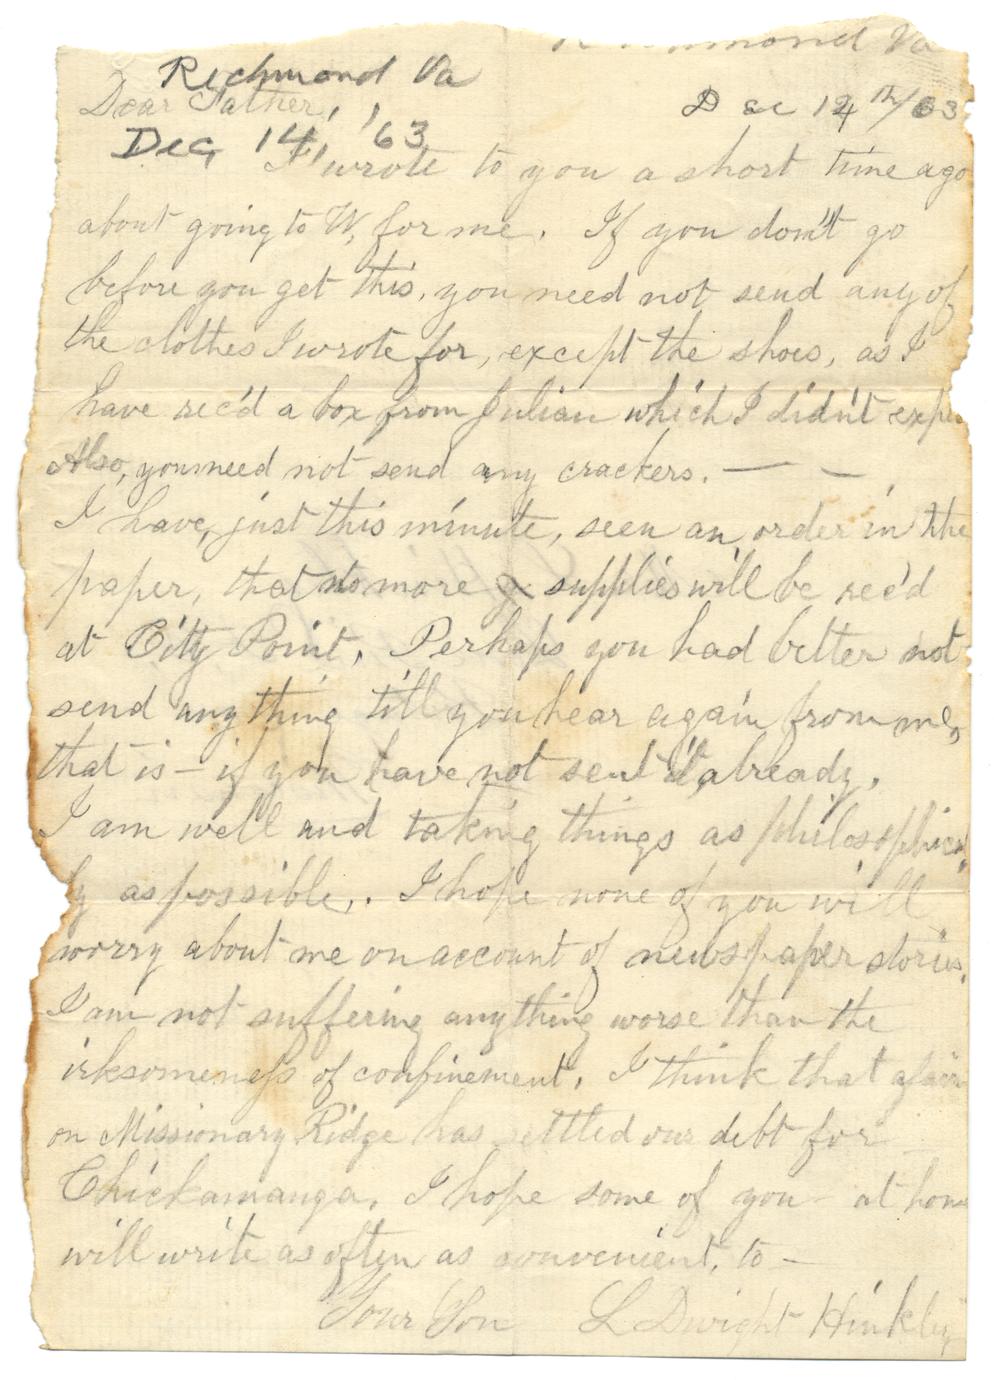 Richmond Va
Richmond Va
Dec 14th/63
Dear Father,
Dec 14, '63
I wrote to you a short time ago
about going to W, for me. If you don't go
before you get this, you need not send any of
the clothes I wrote for, except the shoes, as I
have rec'd a box from Julian which I didn't expe
Also, you need not send any crackers. — —
I have, just this minute, seen an order in the
paper, that no more supplies will be rec'd
at City Point. Perhaps you had better not
send anything till you hear again from me,
that is — if you have not sent it already.
I am well and taking things as philosophical
ly as possible. I hope none of you will
worry about me on account of newspaper stories.
I am not suffering anything worse than the
irksomeness of confinement. I think that afair
on Missionary Ridge has settled our debt for
Chickamanga. I hope some of you at home
will write as often as convenient, to —
Your Son L Dwight Hinkley